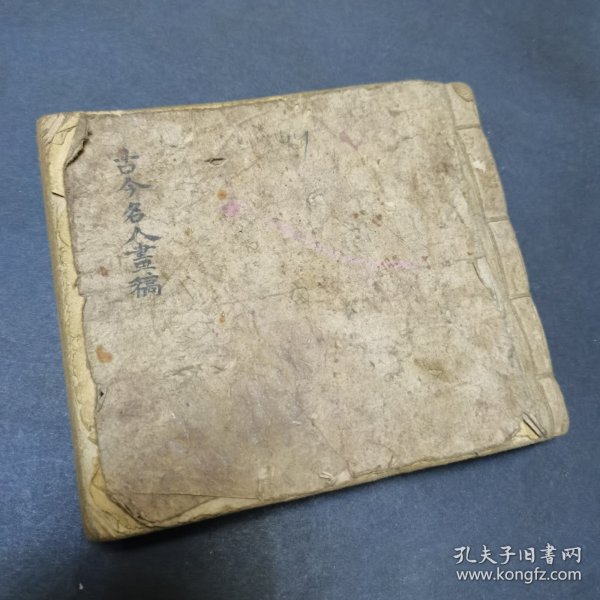 古今名人畫稿
孔夫子旧書网
www.kongfz.com